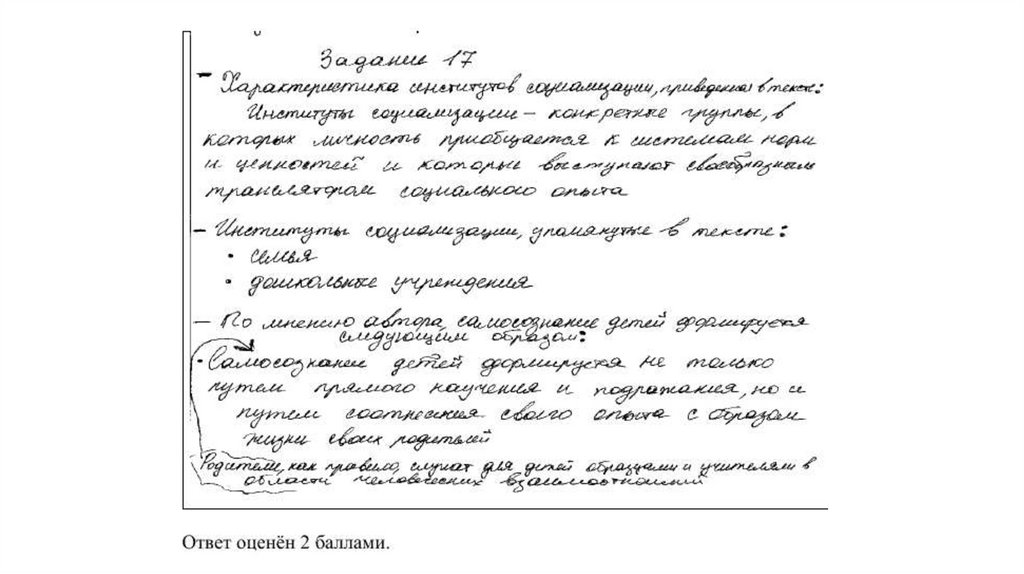 Задание 17
– Характеристика институтов социализации, приведенная в тексте:
Институты социализации – конкретные группы, в
которых личность приобщается к системам норм
и ценностей и которые выступают своеобразным
транслятором социального опыта
– Институты социализации, упомянутые в тексте:
• семья
• дошкольные учреждения
– По мнению автора, самосознание детей формируется
следующим образом:
• Самосознание детей формируется не только
путем прямого научения и подражания, но и
путем соотнесения своего опыта с образом
жизни своих родителей
Родители, как правило, служат для детей образцами и учителями в
области человеческих взаимоотношений
Ответ оценён 2 баллами.